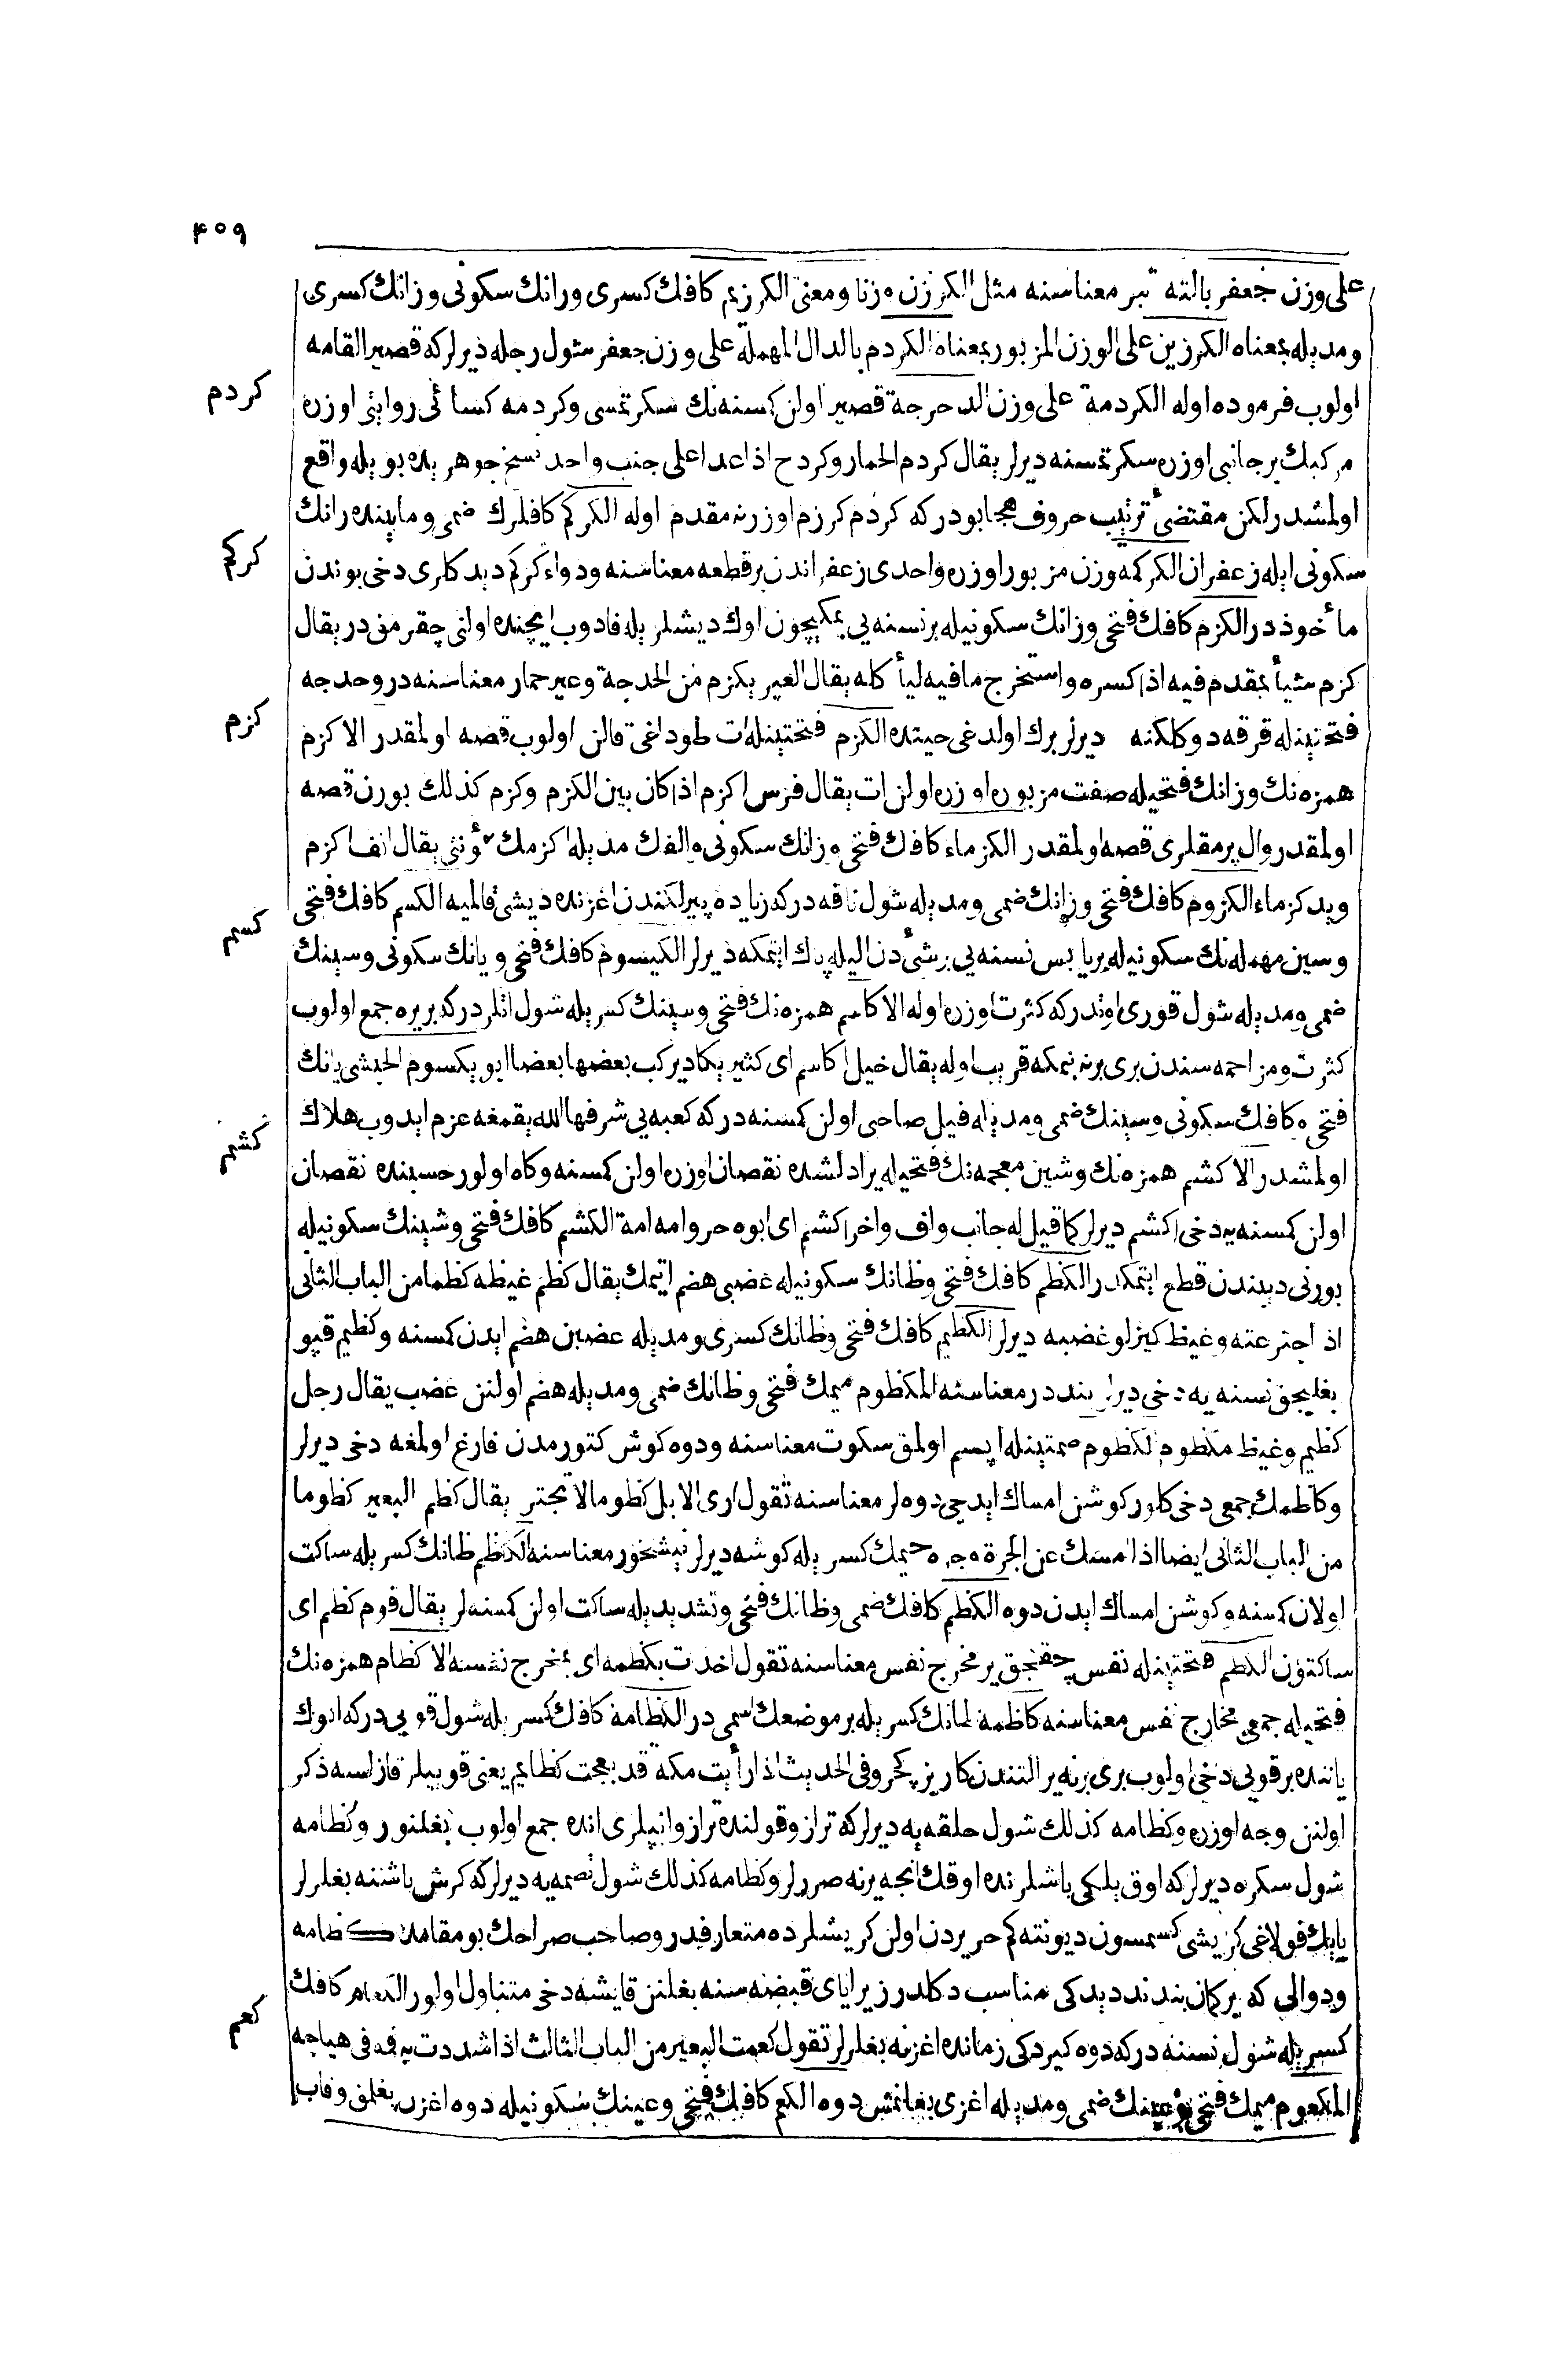 ٤٠٩
على وزن جعفر بالته تبر معناسنه مثل الكرزن وزنا ومعنى الكرزيم كافك كسرى ورانك سكونى وزانك كسرى
ومديله بمعناه الكرزين على الوزن المزبور بمعناه الكردم بالدال المهملة على وزن جعفر شول رجله ديرلركه قصير القامه
كردم
اولوب فرموده اوله الكردمة على وزن الدحرجة قصير اولن كمسنه نك سكرتمسى وكردمه كسائى روايتى اوزره
مركبك بر جانبى اوزره سكرتمسنه ديرلر يقال كردم الحمار وكردح اذا عدا على جنب واحد نسخ جوهريده بويله واقع
اولمشدر لكن مقتضئ ترتيب حروف هجا بودركه كردم كرزم اوزرنه مقدم اوله الكركم كافلرك ضمى ومابينده رانك
كركم
سكونى ايله زعفران الكركمه وزن مزبور اوزره واحدى زعفراندن بر قطعه معناسنه ودواء كركم ديدكلرى دخى بوندن
مأخوذدر الكزم كافك فتحى وزانك سكونيله بر نسنه يى يمكيچون اوك ديشلر يله قادوب ايچنده اولنى چقرمق در يقال
كزم شيأ بمقدم فيه اذا كسره واستخرج ما فيه ليأكله يقال العير يكزم من الحدجة وعير حمار معناسنه در وحدجه
كزم
فتحتينله قرقه دوكلكنه ديرلر برك اولدغى حيتده الكزم فتحتينله ات طوداغى قالن اولوب قصه اولمقدر الاكزم
همزه نك وزانك فتحيله صفت مزبوره اوزره اولن ات يقال فرس اكزم اذا كان بين الكزم وكزم كذلك بورن قصه
اولمقدر وال پرمقلرى قصه اولمقدر الكزماء كافك فتحى وزانك سكونى والفك مديله اكزمك مؤنثى يقال انف اكزم
ويد كزماء الكزوم كافك فتحى وزانك ضمى ومديله شول ناقه دركه زياده پيرلكندن اغزنده ديشى قالميه الكسم كافك فتحى
كسم
وسين مهمله نك سكونيله بر يابس نسنه يى بر شئدن اليله پاك ايتمكه ديرلر الكيسوم كافك فتحى ويانك سكونى وسينك
ضمى ومديله شول قورى اوتدركه كثرت اوزره اوله الاكاسم همزه نك فتحى وسينك كسريله شول اتلردركه بر يره جمع اولوب
كثرت ومزاحمه سندن برى برنه بنمكه قريب اوله يقال خيل اكاسم اى كثير يكاد يركب بعضها بعضا ابو يكسوم الحبشى يانك
فتحى وكافك سكونى وسينك ضمى ومديله فيل صاحبى اولن كمسنه دركه كعبه يى شرفها الله يقمغه عزم ايدوب هلاك
كشم
اولمشدر الاكشم همزه نك وشين معجمه نك فتحيله يرادلشده نقصان اوزره اولن كمسنه وكاه اولور حسبنده نقصان
اولن كمسنه يه دخى اكشم ديرلر كما قيل له جانب واف واخر اكشم اى ابوه حر وامه امة الكشم كافك فتحى وشينك سكونيله
بورنى ديبندن قطع ايتمكدر الكظم كافك فتحى وظانك سكونيله غضبى هضم ايتمك يقال كظم غيظه كظما من الباب الثانى
اذا اجترعته وغيظ كيزلو غضبه ديرلر الكظيم كافك فتحى وظانك كسرى ومديله غضبن هضم ايدن كمسنه وكظيم قپو
بغليجق نسنه يه دخى ديرلر بنددر معناسنه المكظوم ميمك فتحى وظانك ضمى ومديله هضم اولنن غضب يقال رجل
كظيم وغيظ مكظوم الكظوم ضمتينله ابسم اولمق سكوت معناسنه ودوه كوش كتورمدن فارغ اولمغه دخى ديرلر
وكاظمك جمعى دخى كلور كوشن امساك ايديجى دوه لر معناسنه تقول ارى الابل كظوما لا تجتر يقال كظم البعير كظوما
من الباب الثانى ايضا اذا امسك عن الجرة وجره جيمك كسريله كوشه ديرلر نيشخور معناسنه الكاظم ظانك كسريله ساكت
اولان كمسنه وكوشن امساك ايدن دوه الكظم كافك ضمى وظانك فتحى وتشديديله ساكت اولن كمسنه لر يقال قوم كظم اى
ساكتون الكظم فتحتينله نفس چقنجق ير مخرج نفس معناسنه تقول اخذت بكظمه اى بمخرج نفسه الاكظام همزه نك
فتحيله جمعى مخارج نفس معناسنه كاظمة ظانك كسريله بر موضعك اسمى در الكظامة كافك كسريله شول قويى دركه انوك
ياننده بر قويى دخى اولوب برى برنه ير التندن كاريز چكر وفى الحديث اذا رأيت مكة قد بعجت كظايم يعنى قوييلر قازلسه ذكر
اولنن وجه اوزره وكظامه كذلك شول حلقه يه ديرلركه ترازو قولنده ترازو ايپلرى انده جمع اولوب بغلنور وكظامه
شول سكره ديرلركه اوق يلكى باشلرنده اوقك انجه يرنه صررلر وكظامه كذلك شول تصمه يه ديرلركه كرش باشننه بغلرلر
يايك قولاغى كريشى كسمسون ديونته كم حريردن اولن كريشلرده متعارفدر وصاحب صراحك بو مقامده كظامه
ودوالى كه بر كمان بندند ديدكى مناسب دكلدر زيرا ياى قبضه سنه بغلنن قايشه دخى متناول اولور الكعام كافك
كعم
كسريله شول نسنه دركه دوه كيردكى زمانده اغزنه بغلرلر تقول كعمت البعير من الباب الثالث اذا شددت به فمه فى هياجه
المكعوم ميمك فتحى وعينك ضمى ومديله اغزى بغلنمش دوه الكعم كافك فتحى وعينك سكونيله دوه اغزن بغلمق وقاب